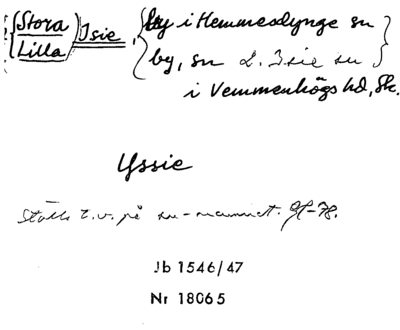 Stora Isie, by i Hemmesdynge sn
Lilla by, sn L. Isie sn
i Vemmenhögs hd, Sk.
Yssie
Ställs t.v. på sn-namnet. GH-78.
Jb 1546/47
Nr 18065